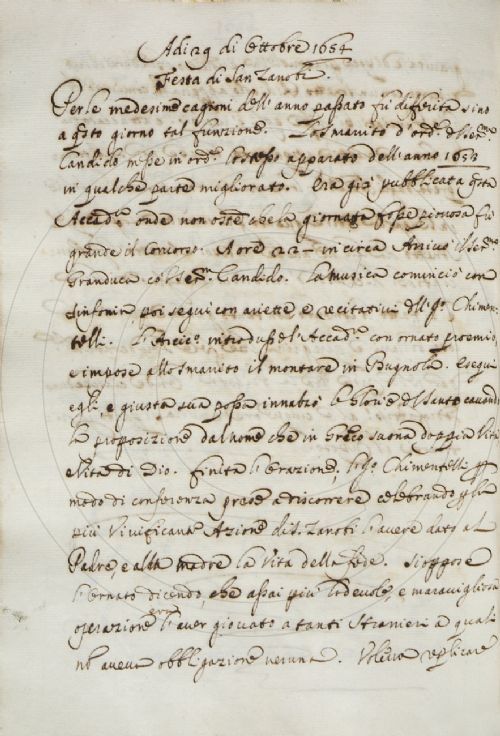 Adi 29 di Ottobre 1654
Festa di San Zanobi.
Per le medesime cagioni dell'anno passato fu differita sino
a q.sto giorno tal funzione. Lo Smarrito d'ord.e del Ser.mo
Candido messe in ord.e lo stesso apparato dell'anno 1653
in qualche parte migliorato. Era già pubblicata q.sta
Accad.a onde non oste che la giornata fosse piovosa fu
grande il concorso. A ore 22 in circa Arrivò il Ser.mo
Granduca co'l Ser.mo Candido. La musica cominciò con
sinfonia, poi seguì con ariette e recitativi del S.r Chimen-
telli. L'Arcic.o introdusse l'Accad.a con ornato proemio,
e impose allo Smarrito il montare in Bugnola. Eseguì
egli, e giusta sua possa innalzò le glorie del Santo cavando
la proposizione dal nome che in Greco suona doppia Vita
e Vita di Dio. Finita l'orazione, il S.r Chimentelli p
modo di conferenza prese a discorrere celebrando p la
più Vivificante Azione di S. Zanobi l'avere dato al
Padre, e alla madre la Vita della fede. Si oppose
l'Ornato dicendo, che assai più lodevole, e maravigliosa
operazione era l'aver giovato a tanti stranieri a quali
nō aveva obbligazione veruna. Voleva replicare